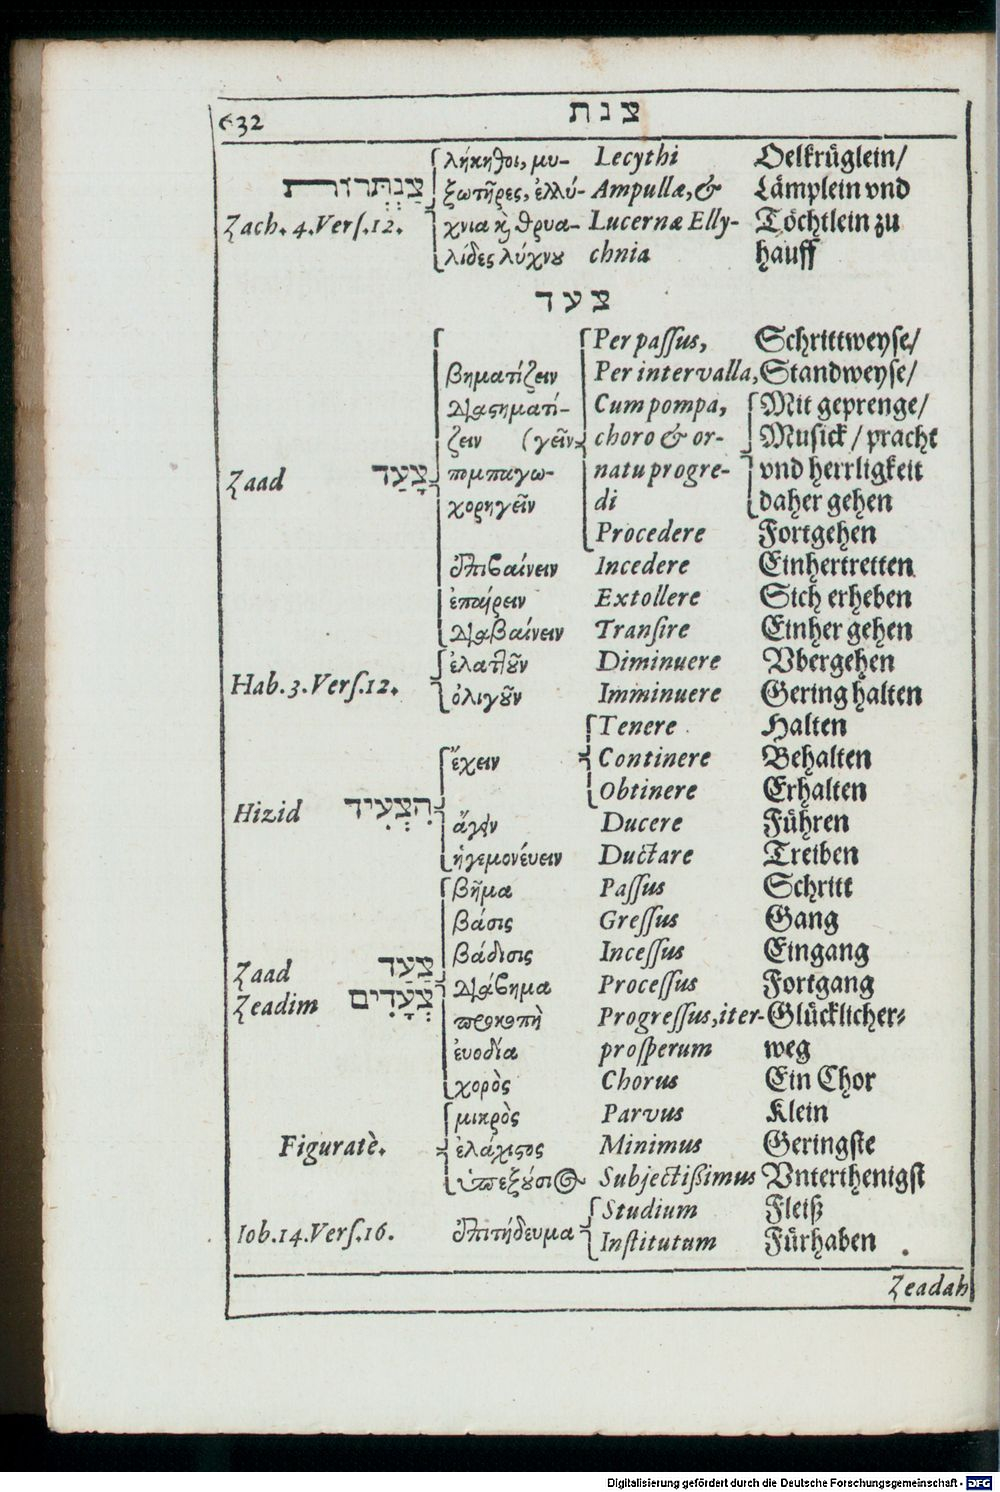 632 צנת
λήκηθοι, μυ- Lecythi Oelkrüglein/
צַנְתְּרוֹת ξωτῆρες, ἐλλύ- Ampullæ, & Lämplein vnd
Zach. 4. Verſ. 12. χνια κ̀ θρυα- Lucernæ Elly- Töchtlein zu
λίδες λύχνου chnia hauff
צעד
Per paſſus, Schrittweyſe/
βηματίζειν Per intervalla, Standweyſe/
διαβηματί- Cum pompa, Mit geprenge/
ζειν (γεῖν choro & or- Muſick / pracht
Zaad צָעַד πομπαγω- natu progre- vnd herrligkeit
χορηγεῖν di daher gehen
Procedere Fortgehen
ἐπιβαίνειν Incedere Einhertretten
ἐπαίρειν Extollere Sich erheben
διαβαίνειν Tranſire Einher gehen
ἐλαττοῦν Diminuere Vbergehen
Hab. 3. Verſ. 12. ὀλιγοῦν Imminuere Gering halten
Tenere Halten
ἔχειν Continere Behalten
Obtinere Erhalten
Hizid הִצְעִיד ἄγειν Ducere Führen
ἡγεμονέυειν Ductare Treiben
βῆμα Paſſus Schritt
βάσις Greſſus Gang
βάδισις Inceſſus Eingang
Zaad צַעַד διάβημα Proceſſus Fortgang
Zeadim צְעָדִים προκοπὴ Progreſſus, iter- Glücklicher-
ἐυοδία proſperum weg
χορὸς Chorus Ein Chor
μικρὸς Parvus Klein
Figuratè. ἐλάχιστος Minimus Geringſte
ὑπεξούσιος Subjectißimus Vnterthenigſt
Studium Fleiß
Iob. 14. Verſ. 16. ἐπιτήδευμα Inſtitutum Fürhaben
Zeadah
Digitalisierung gefördert durch die Deutsche Forschungsgemeinschaft - DFG